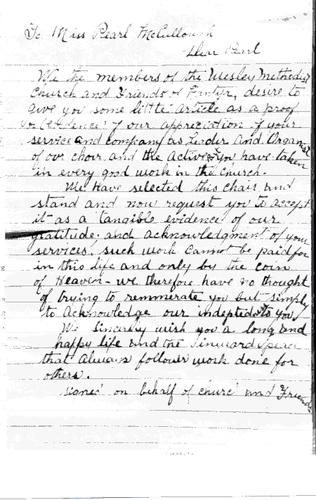 To Miss Pearl McCullough
Dear Pearl
We the members of the Wesley Methodist
Church and Friends of desire to
give you some little article as a proof
of our appreciation of your
service and company as Leader and Organist
of our choir and the Active you have taken
in every good work in the Church.
We Have selected this chair and
stand and now request you to accept
it as a tangible evidence of our
gratitude and acknowledgment of your
services, such work cannot be paid for
in this life and only by the coin
of Heaven - we therefore have no thought
of trying to remmerate you but simply
to Acknowledge our indeptid to you.
We Sincerely wish you a long and
happy life and the Innward peace
that Always follows work done for
others.
on behalf of and Friends